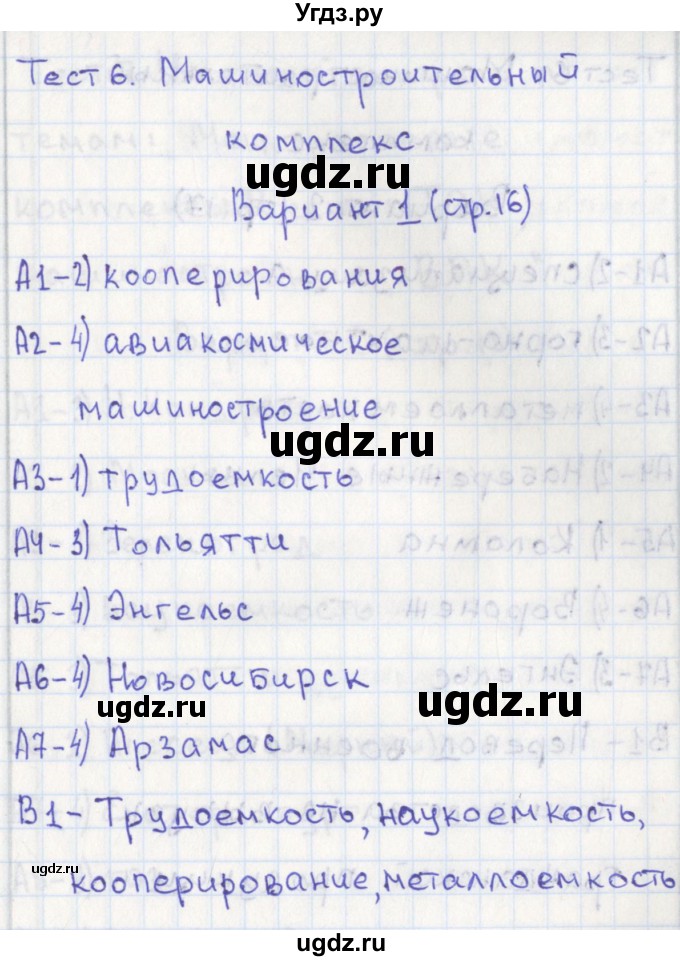 Угдз.ру
Тест 6. Машиностроительный
комплекс
ugdz.ru
Вариант 1 (стр.16)
А1-2) кооперирования
А2-4) авиакосмическое
машиностроение
ugdz.ru
А3-1) трудоемкость
А4-3) Тольятти
А5-4) Энгельс
А6-4) Новосибирск
ugdz.ru ugdz.ru
А7-4) Арзамас
В1- Трудоемкость, наукоемкость,
ugdz.ru
кооперирование, металлоемкость
ugdz.ru